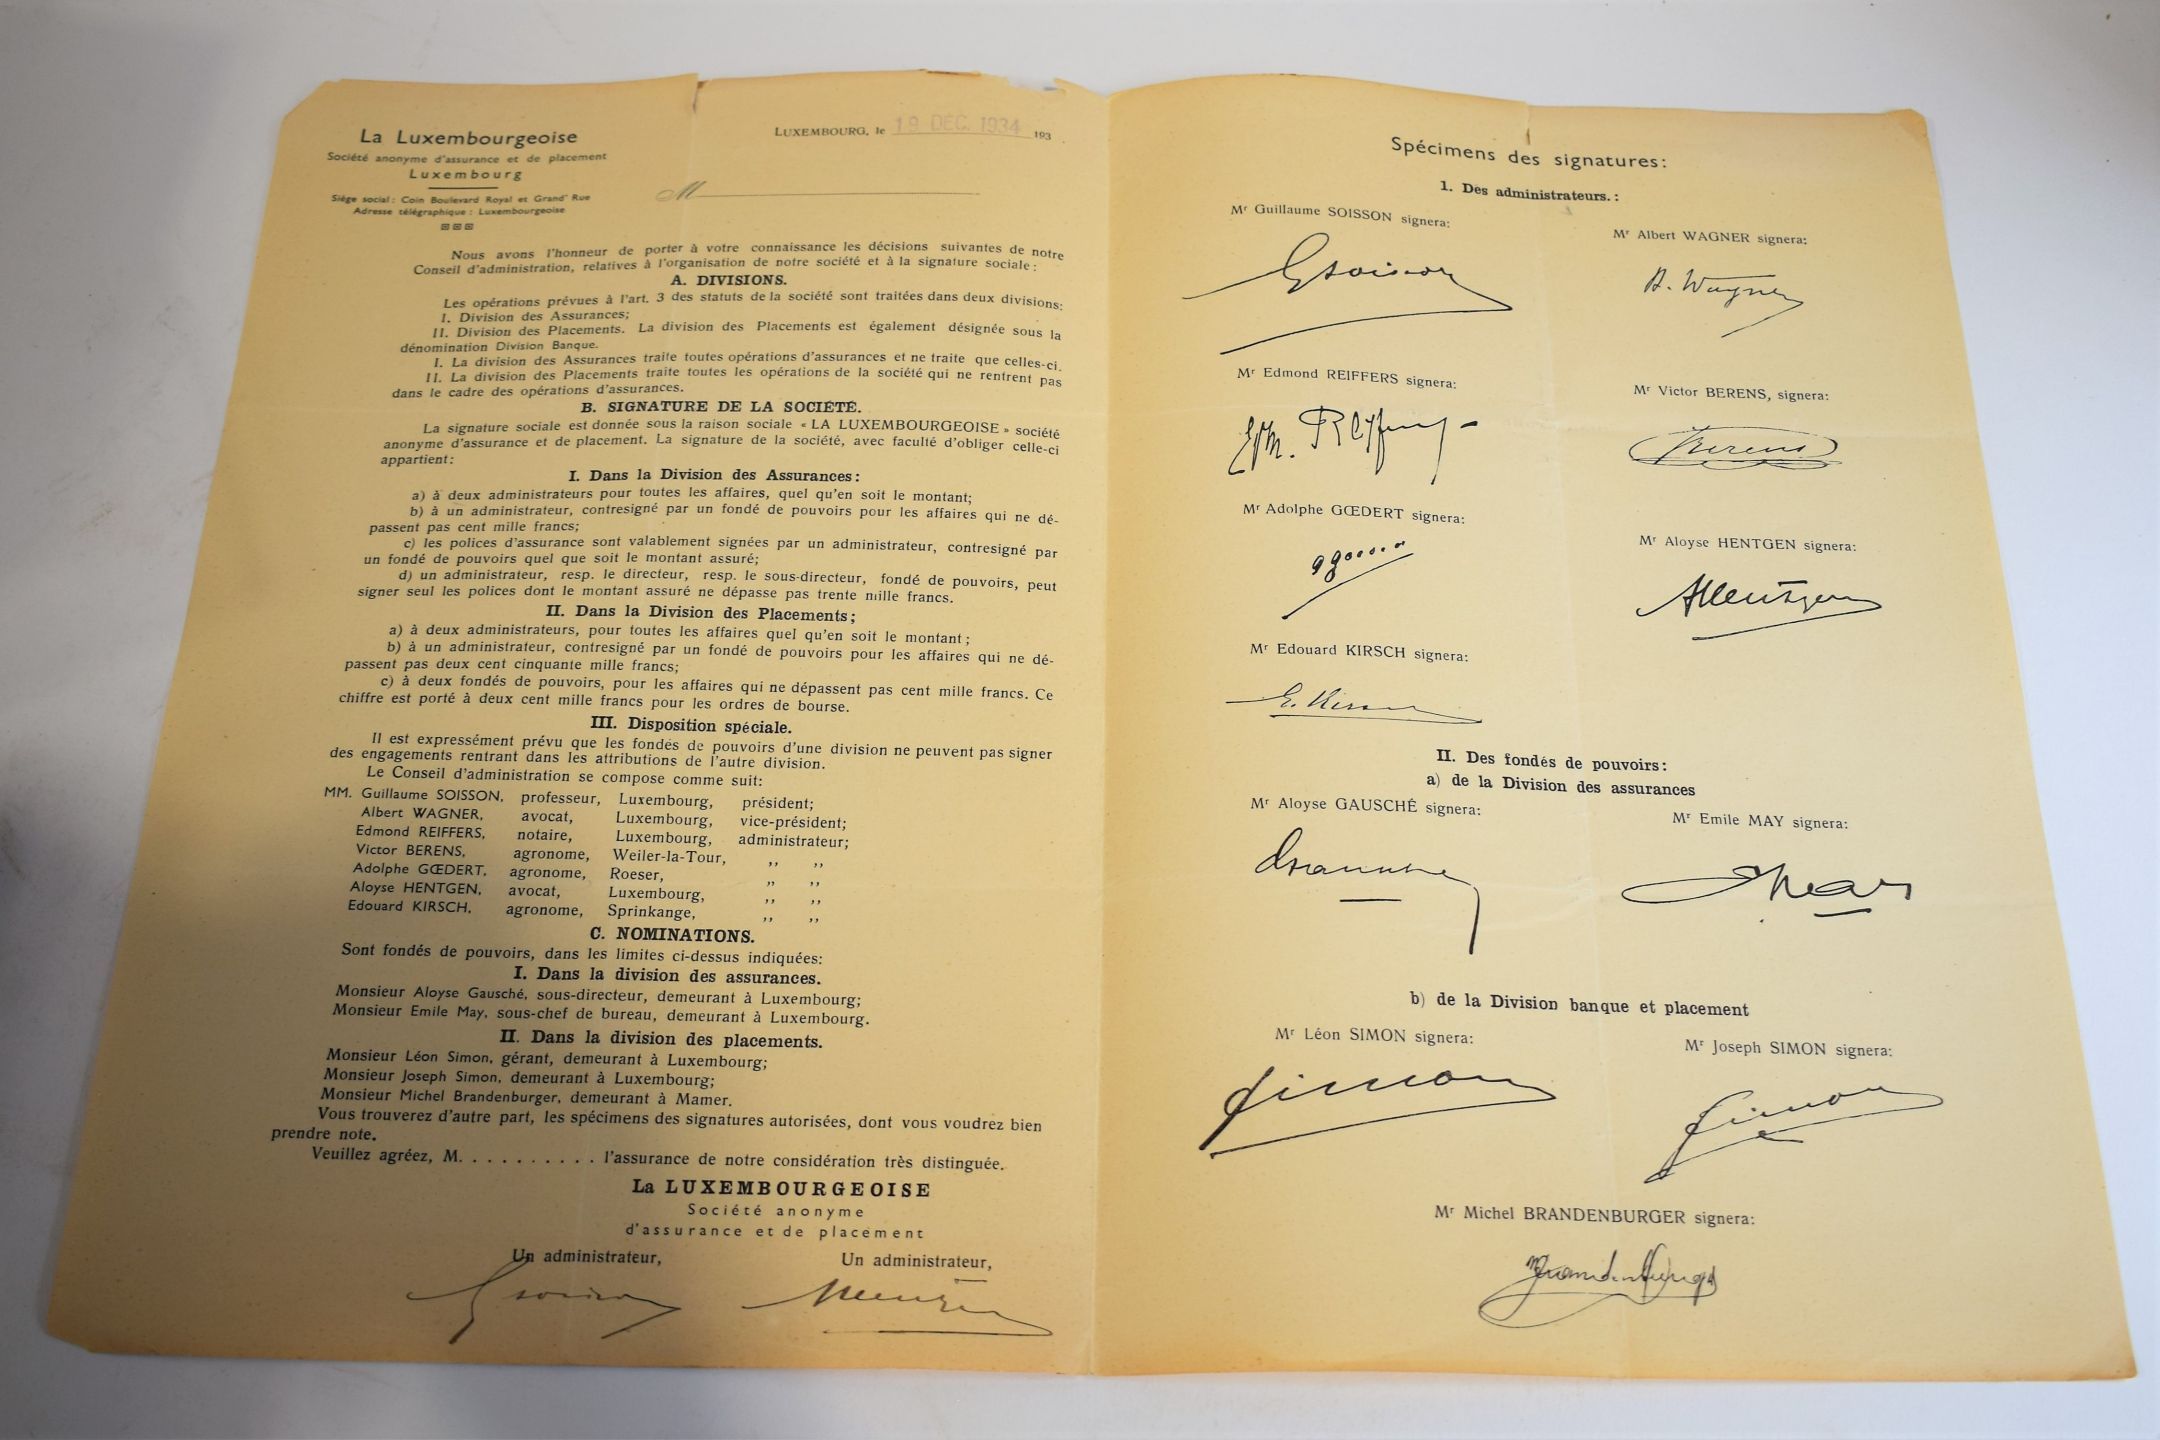 La Luxembourgeoise
Société anonyme d'assurance et de placement
Luxembourg
Siège social : Coin Boulevard Royal et Grand' Rue
Adresse télégraphique : Luxembourgeoise
LUXEMBOURG, le 19 DEC. 1934 193
M
Nous avons l'honneur de porter à votre connaissance les décisions suivantes de notre
Conseil d'administration, relatives à l'organisation de notre société et à la signature sociale :
A. DIVISIONS.
Les opérations prévues à l'art. 3 des statuts de la société sont traitées dans deux divisions:
I. Division des Assurances;
II. Division des Placements. La division des Placements est également désignée sous la
dénomination Division Banque.
I. La division des Assurances traite toutes opérations d'assurances et ne traite que celles-ci.
II. La division des Placements traite toutes les opérations de la société qui ne rentrent pas
dans le cadre des opérations d'assurances.
B. SIGNATURE DE LA SOCIÉTÉ.
La signature sociale est donnée sous la raison sociale « LA LUXEMBOURGEOISE » société
anonyme d'assurance et de placement. La signature de la société, avec faculté d'obliger celle-ci
appartient:
I. Dans la Division des Assurances:
a) à deux administrateurs pour toutes les affaires, quel qu'en soit le montant;
b) à un administrateur, contresigné par un fondé de pouvoirs pour les affaires qui ne dé-
passent pas cent mille francs;
c) les polices d'assurance sont valablement signées par un administrateur, contresigné par
un fondé de pouvoirs quel que soit le montant assuré;
d) un administrateur, resp. le directeur, resp. le sous-directeur, fondé de pouvoirs, peut
signer seul les polices dont le montant assuré ne dépasse pas trente mille francs.
II. Dans la Division des Placements;
a) à deux administrateurs, pour toutes les affaires quel qu'en soit le montant;
b) à un administrateur, contresigné par un fondé de pouvoirs pour les affaires qui ne dé-
passent pas deux cent cinquante mille francs;
c) à deux fondés de pouvoirs, pour les affaires qui ne dépassent pas cent mille francs. Ce
chiffre est porté à deux cent mille francs pour les ordres de bourse.
III. Disposition spéciale.
Il est expressément prévu que les fondés de pouvoirs d'une division ne peuvent pas signer
des engagements rentrant dans les attributions de l'autre division.
Le Conseil d'administration se compose comme suit:
MM. Guillaume SOISSON, professeur, Luxembourg, président;
Albert WAGNER, avocat, Luxembourg, vice-président;
Edmond REIFFERS, notaire, Luxembourg, administrateur;
Victor BERENS, agronome, Weiler-la-Tour, ,, ,,
Adolphe GŒDERT, agronome, Roeser, ,, ,,
Aloyse HENTGEN, avocat, Luxembourg, ,, ,,
Edouard KIRSCH, agronome, Sprinkange, ,, ,,
C. NOMINATIONS.
Sont fondés de pouvoirs, dans les limites ci-dessus indiquées:
I. Dans la division des assurances.
Monsieur Aloyse Gausché, sous-directeur, demeurant à Luxembourg;
Monsieur Emile May, sous-chef de bureau, demeurant à Luxembourg.
II. Dans la division des placements.
Monsieur Léon Simon, gérant, demeurant à Luxembourg;
Monsieur Joseph Simon, demeurant à Luxembourg;
Monsieur Michel Brandenburger, demeurant à Mamer.
Vous trouverez d'autre part, les spécimens des signatures autorisées, dont vous voudrez bien
prendre note.
Veuillez agréez, M. . . . . . . . . . . l'assurance de notre considération très distinguée.
La LUXEMBOURGEOISE
Société anonyme
d'assurance et de placement
Un administrateur, Un administrateur,
Spécimens des signatures:
1. Des administrateurs. :
Mr Guillaume SOISSON signera:
Mr Albert WAGNER signera:
GSoisson
A. Wagner
Mr Edmond REIFFERS signera:
Mr Victor BERENS, signera:
Edm. Reiffers
VBerens
Mr Adolphe GŒDERT signera:
Mr Aloyse HENTGEN signera:
AHentgen
Mr Edouard KIRSCH signera:
E. Kirsch
II. Des fondés de pouvoirs:
a) de la Division des assurances
Mr Aloyse GAUSCHÉ signera:
Mr Emile MAY signera:
b) de la Division banque et placement
Mr Léon SIMON signera:
Mr Joseph SIMON signera:
Simon
Simon
Mr Michel BRANDENBURGER signera: